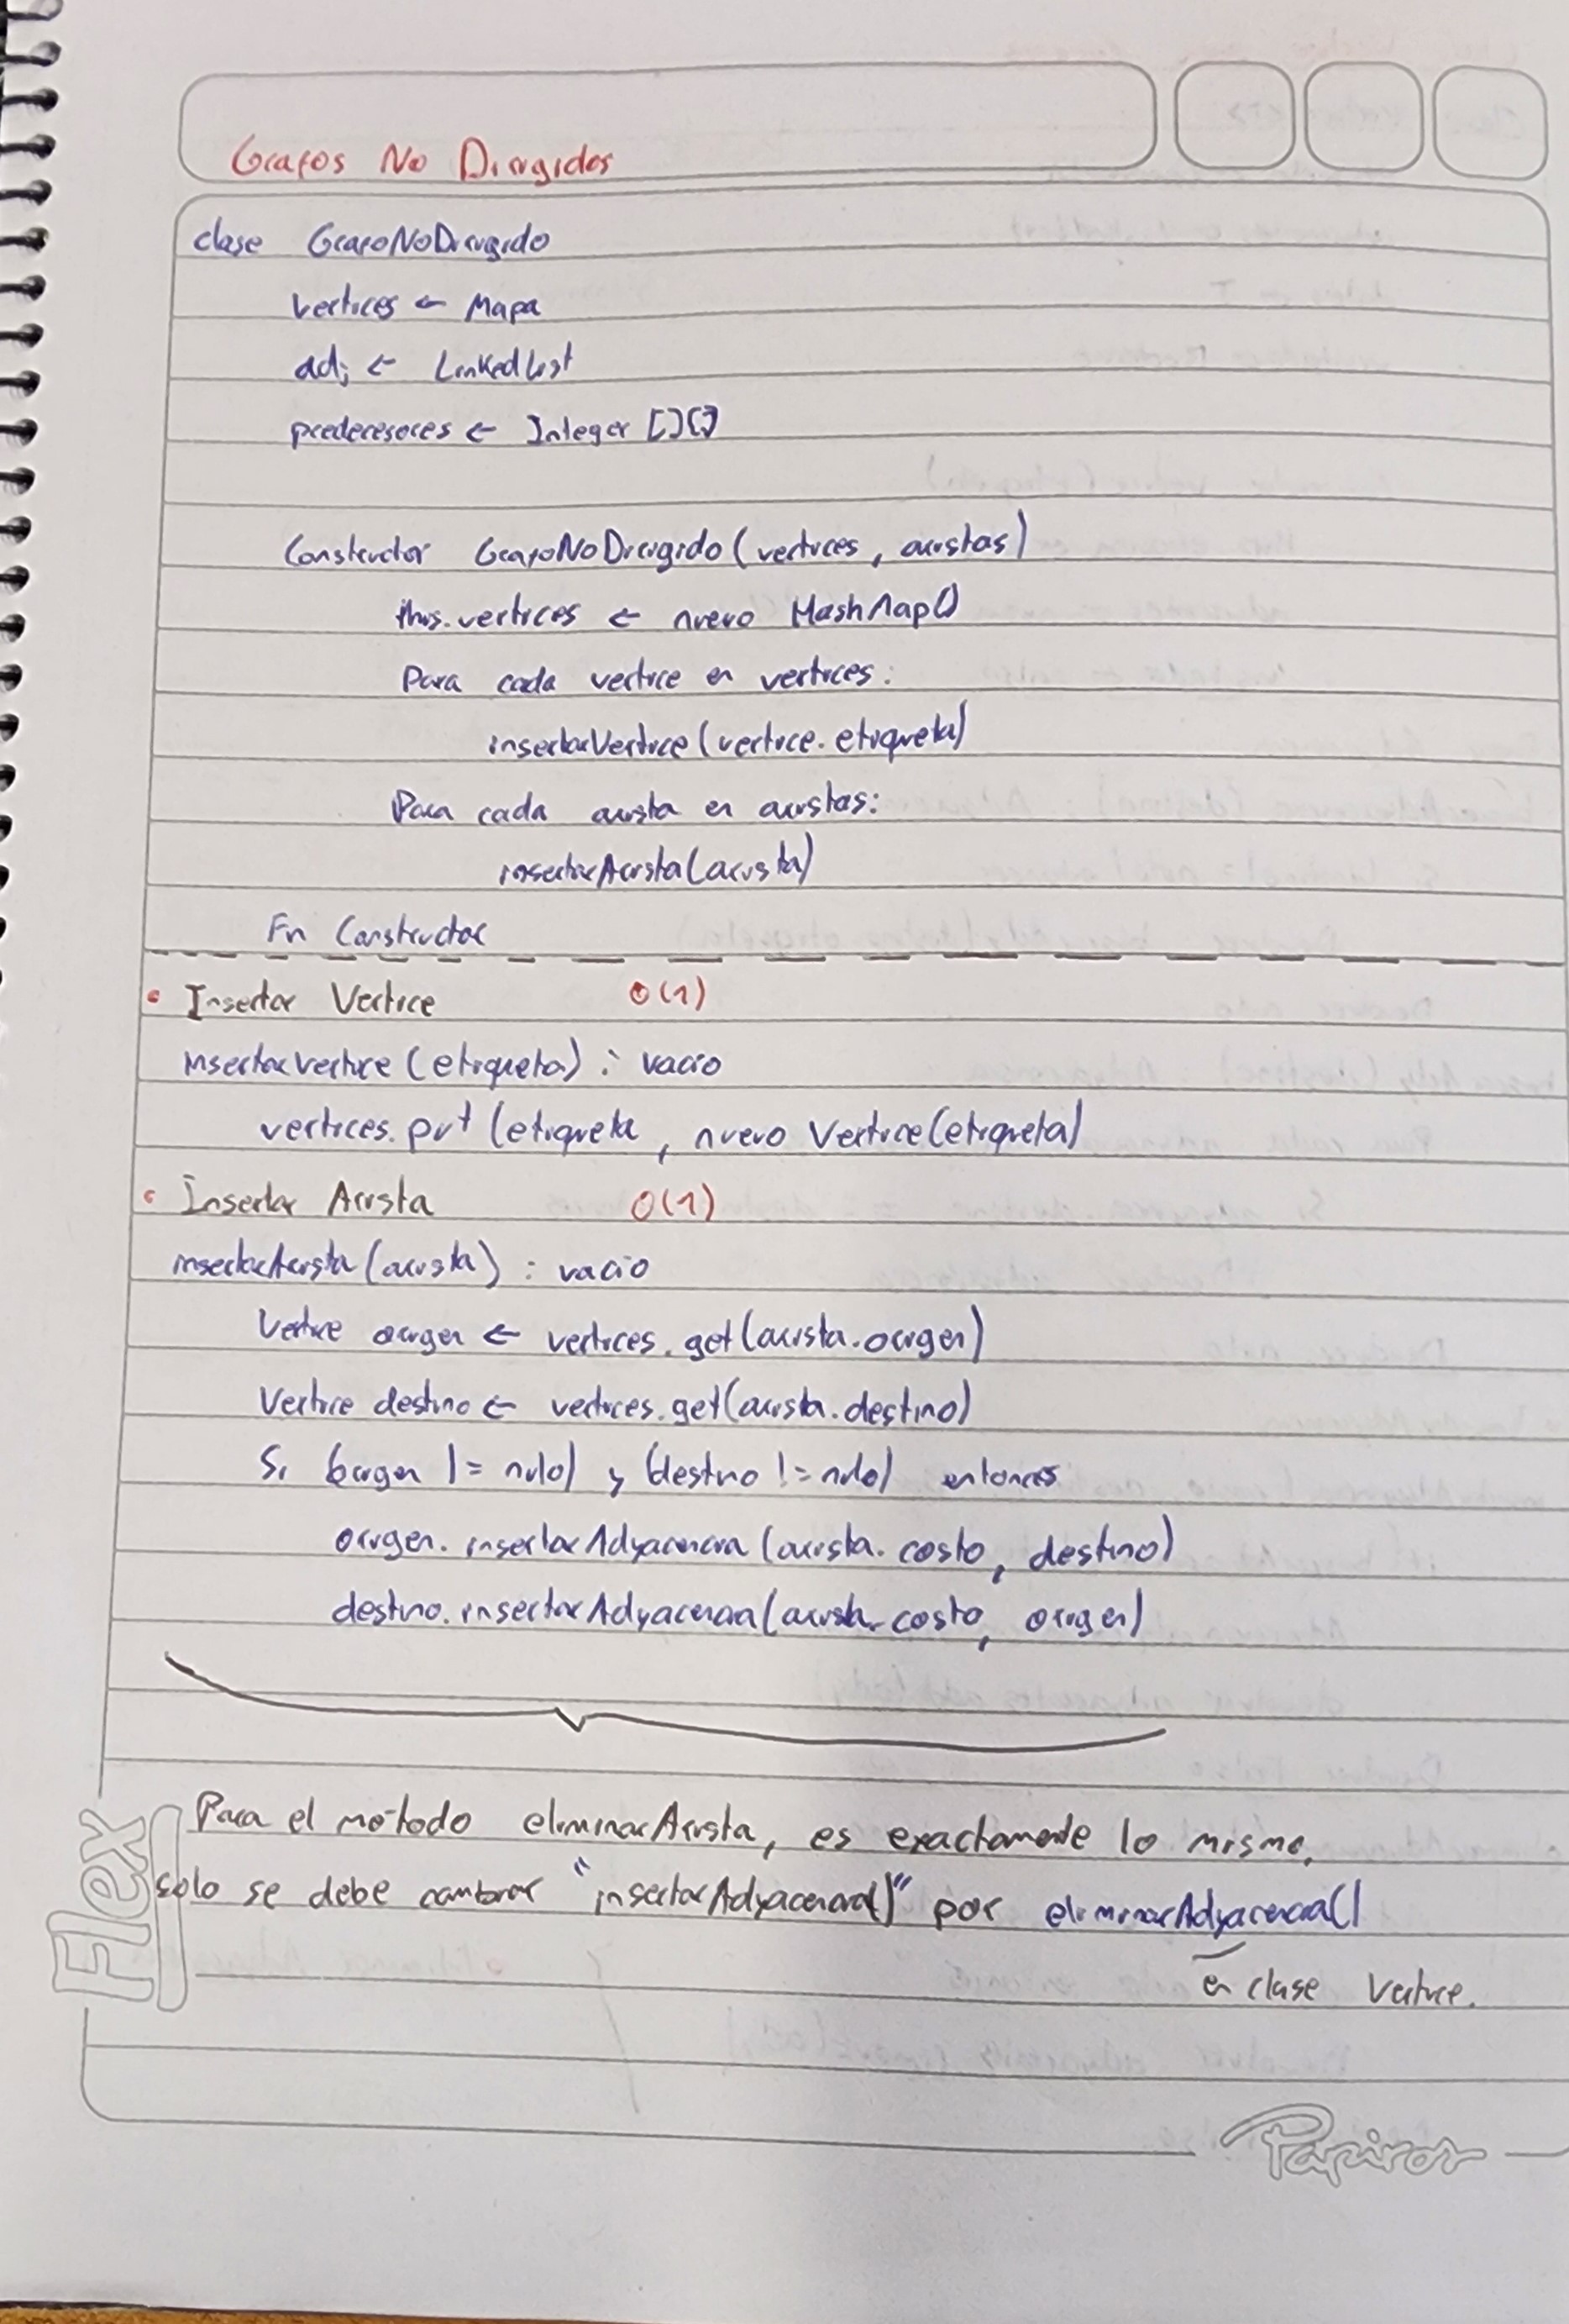 Grafos No Dirigidos
clase GrafoNoDirigido
vertices ← Mapa
adj ← LinkedList
predecesores ← Integer [][]
Constructor GrafoNoDirigido (vertices, aristas)
this.vertices ← nuevo HashMap()
Para cada vertice en vertices:
insertarVertice (vertice.etiqueta)
Para cada arista en aristas:
insertarArista (arista)
Fin Constructor
• Insertar Vertice O(1)
insertarVertice (etiqueta) : vacio
vertices.put (etiqueta, nuevo Vertice(etiqueta)
• Insertar Arista O(1)
insertarArista (arista) : vacio
Vertice origen ← vertices.get(arista.origen)
Vertice destino ← vertices.get(arista.destino)
Si (origen != nulo) y (destino != nulo) entonces
origen.insertarAdyacencia (arista.costo, destino)
destino.insertarAdyacencia (arista.costo, origen)
Para el método eliminarArista, es exactamente lo mismo,
solo se debe cambiar "insertarAdyacencia()" por eliminarAdyacencia()
en clase Vertice.
Flex
Papiros